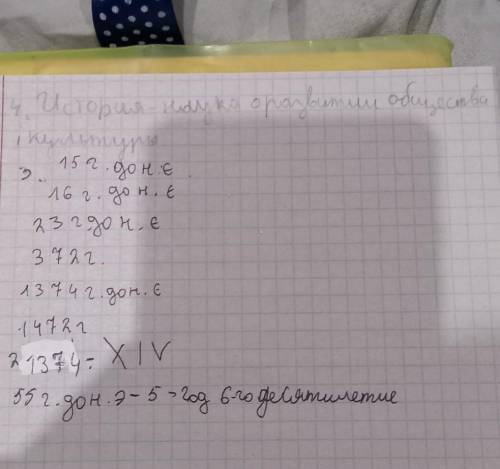 4. История - наука о развитии общества
и культуры
э.. 15 г. до н. є
16 г. до н. є
23 г до н. є
372 г.
1374 г. до н. є
1472 г
2 1374 = XIV
55 г. до н. э - 5 - год 6-го десятилетие